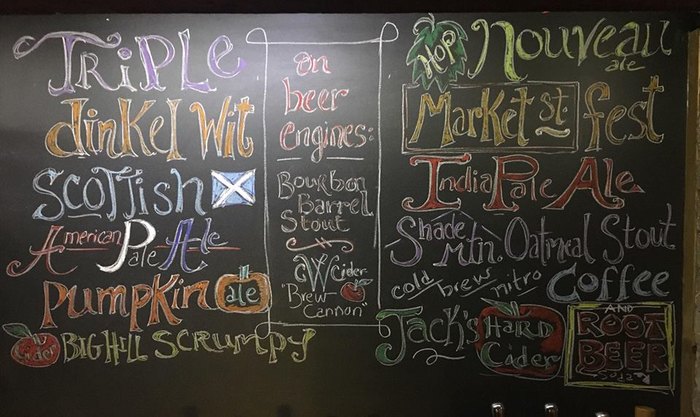 Triple
dinkel Wit
Scottish
American Pale Ale
Pumpkin ale
Cider Big Hill Scrumpy
on
beer
engines:
Bourbon
Barrel
Stout
GW Cider
"Brew
Cannon"
Hop Nouveau
ale
Market St. fest
India Pale Ale
Shade Mtn. Oatmeal Stout
cold brew nitro Coffee
Jack's Hard Cider
and
Root
Beer
soda